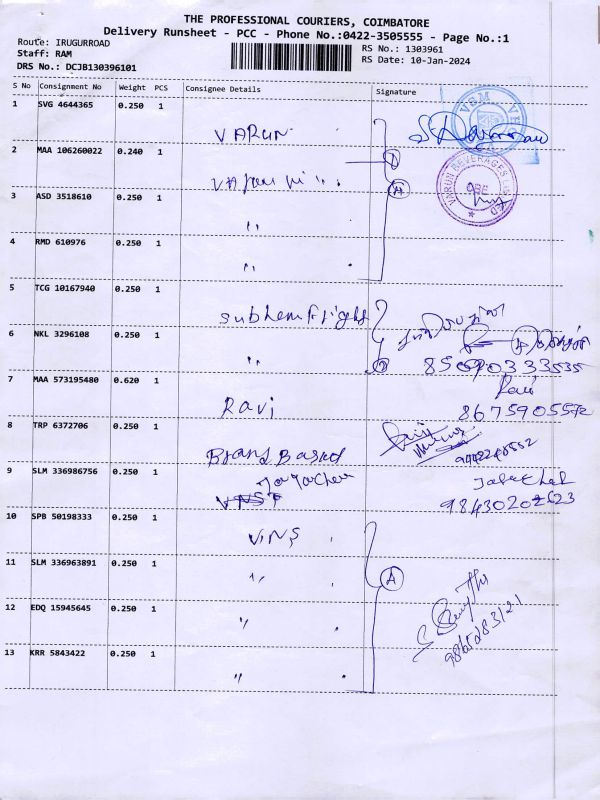 THE PROFESSIONAL COURIERS, COIMBATORE
Delivery Runsheet - PCC - Phone No.:0422-3505555 - Page No.:1
Route: IRUGURROAD
RS No.: 1303961
Staff: RAM
RS Date: 10-Jan-2024
DRS No.: DCJB130396101
S No Consignment No Weight PCS Consignee Details Signature
1 SVG 4644365 0.250 1 VARUN
2 MAA 106260022 0.240 1
VARUN BEVERAGES LIMITED
3 ASD 3518610 0.250 1 "
4 RMD 610976 0.250 1 "
A
5 TCG 10167940 0.250 1 Subhem Fright
6 NKL 3296108 0.250 1 "
7 MAA 573195480 0.620 1 Ravi
Ravi
8675905572
8 TRP 6372706 0.250 1 Brand Based
9 SLM 336986756 0.250 1 VNST
98430202623
10 SPB 50198333 0.250 1 VINS
11 SLM 336963891 0.250 1 "
A
12 EDQ 15945645 0.250 1 "
9865283121
13 KRR 5843422 0.250 1 "